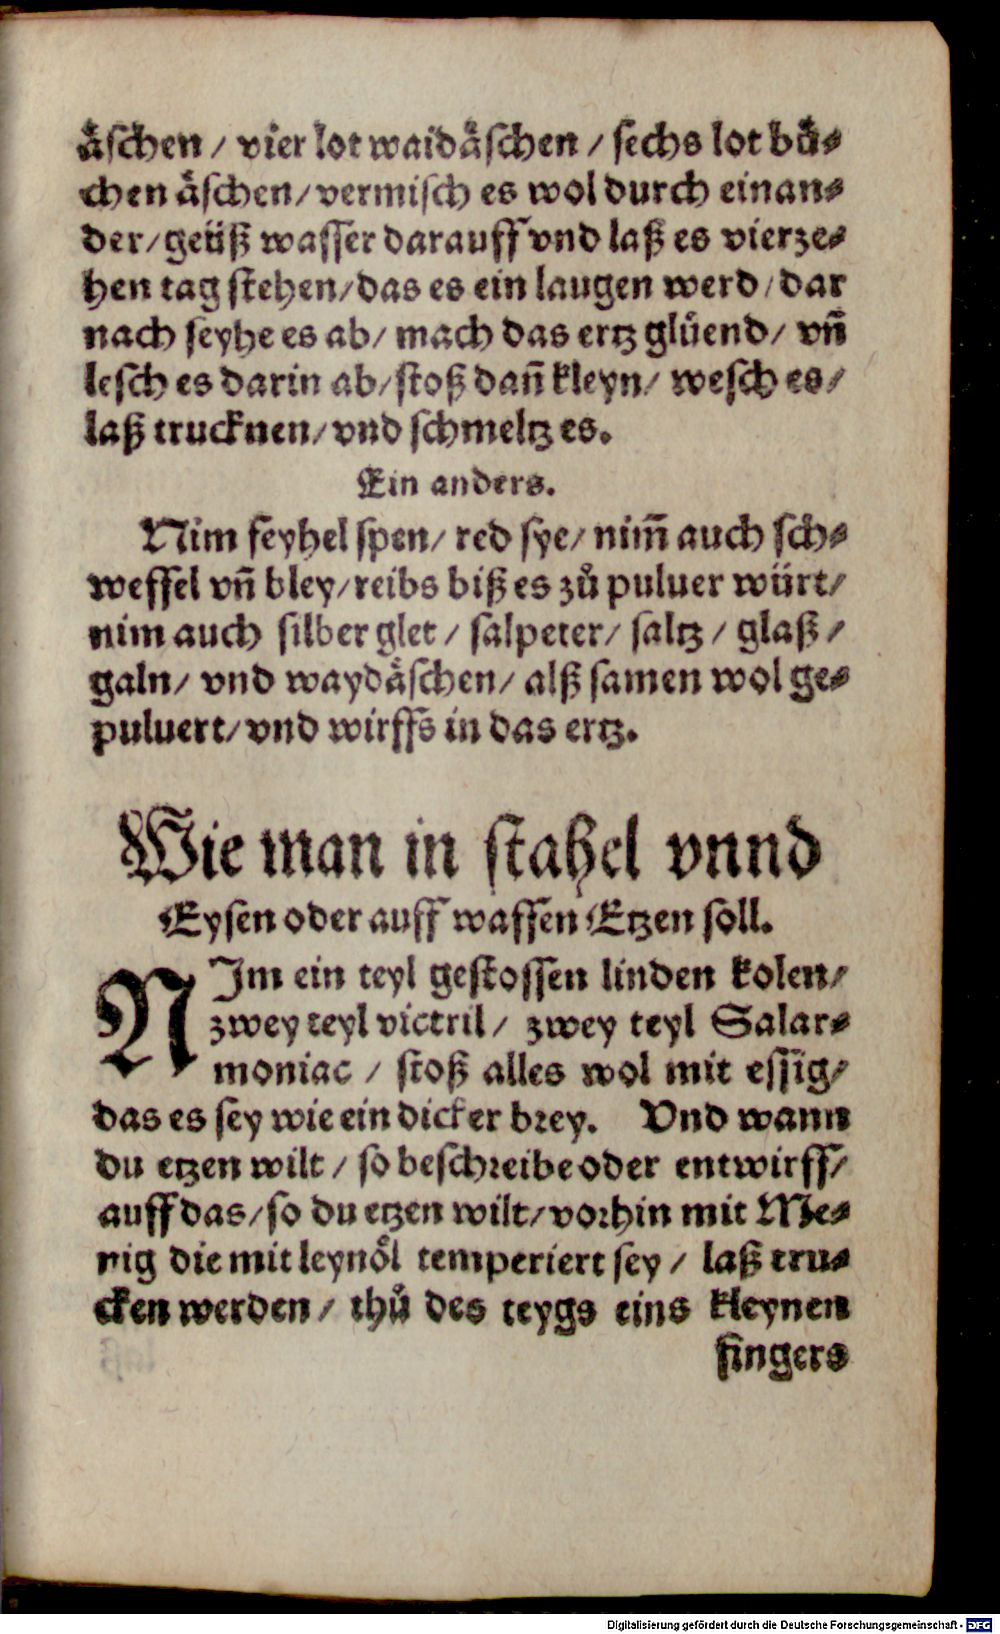 aͤſchen / vier lot waidaͤſchen / ſechs lot buͤ⸗
chen aͤſchen / vermiſch es wol durch einan⸗
der / geüß waſſer darauff vnd laß es vierze⸗
hen tag ſtehen / das es ein laugen werd / dar
nach ſeyhe es ab / mach das ertz gluͤend / vn̄
leſch es darin ab / ſtoß dan̄ kleyn / weſch es /
laß trucknen / vnd ſchmeltz es.
Ein anders.
Nim feyhel ſpen / red ſye / nim̄ auch ſch⸗
weffel vn̄ bley / reibs biß es zuͦ puluer würt /
nim auch ſilber glet / ſalpeter / ſaltz / glaß /
galn / vnd waydaͤſchen / alß ſamen wol ge⸗
puluert / vnd wirffs in das ertz.
Wie man in ſtahel vnnd
Eyſen oder auff waffen Etzen ſoll.
NIm ein teyl geſtoſſen linden kolen /
zwey teyl victril / zwey teyl Salar⸗
moniac / ſtoß alles wol mit eſſig /
das es ſey wie ein dicker brey. Vnd wann
du etzen wilt / ſo beſchꝛeibe oder entwirff /
auff das / ſo du etzen wilt / voꝛhin mit Me⸗
nig die mit leynoͤl temperiert ſey / laß tru⸗
cken werden / thuͦ des teygs eins kleynen
fingers
Digitalisierung gefördert durch die Deutsche Forschungsgemeinschaft - DFG